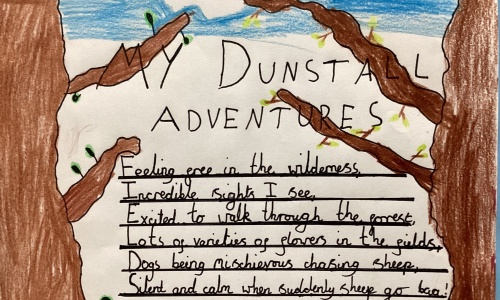 MY DUNSTALL
ADVENTURES
Feeling free in the wilderness,
Incredible sights I see,
Exited to walk through the forrest,
Lots of varieties of flowers in the fields,
Dogs being mischievous chasing sheep,
Silent and calm when suddenly sheep go baa!